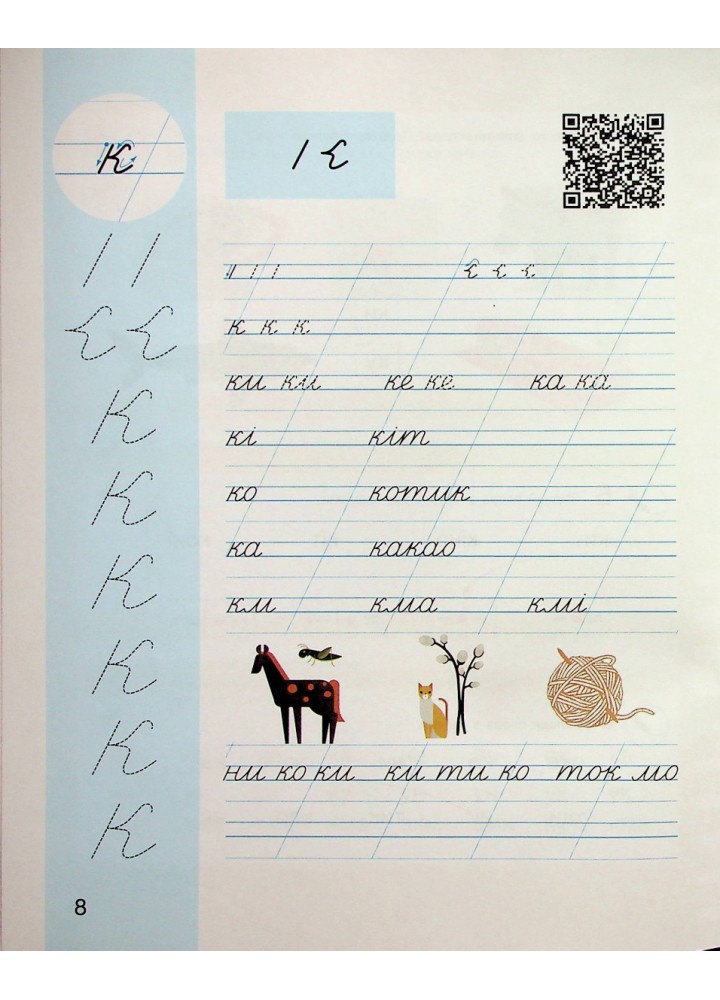 к
к к к
ки ки ке ке ка ка
кі кіт
ко котик
ка какао
км кма кмі
ни ко ки ки ти ко ток мо
К
К
К
К
К
К
8